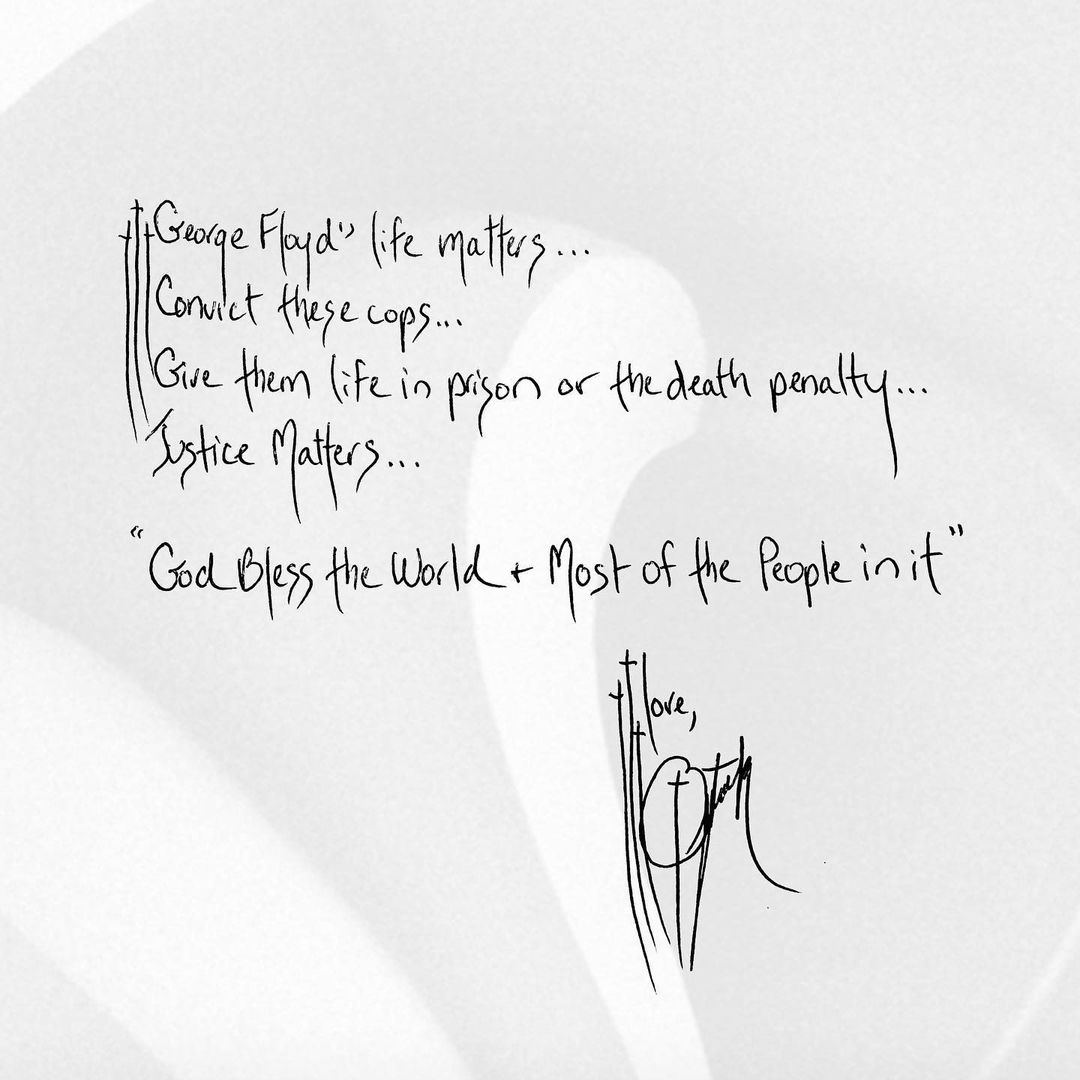 George Floyd" life matters...
Convict these cops...
Give them life in prison or the death penalty...
Justice Matters...
"God Bless the World + Most of the People in it"
love,